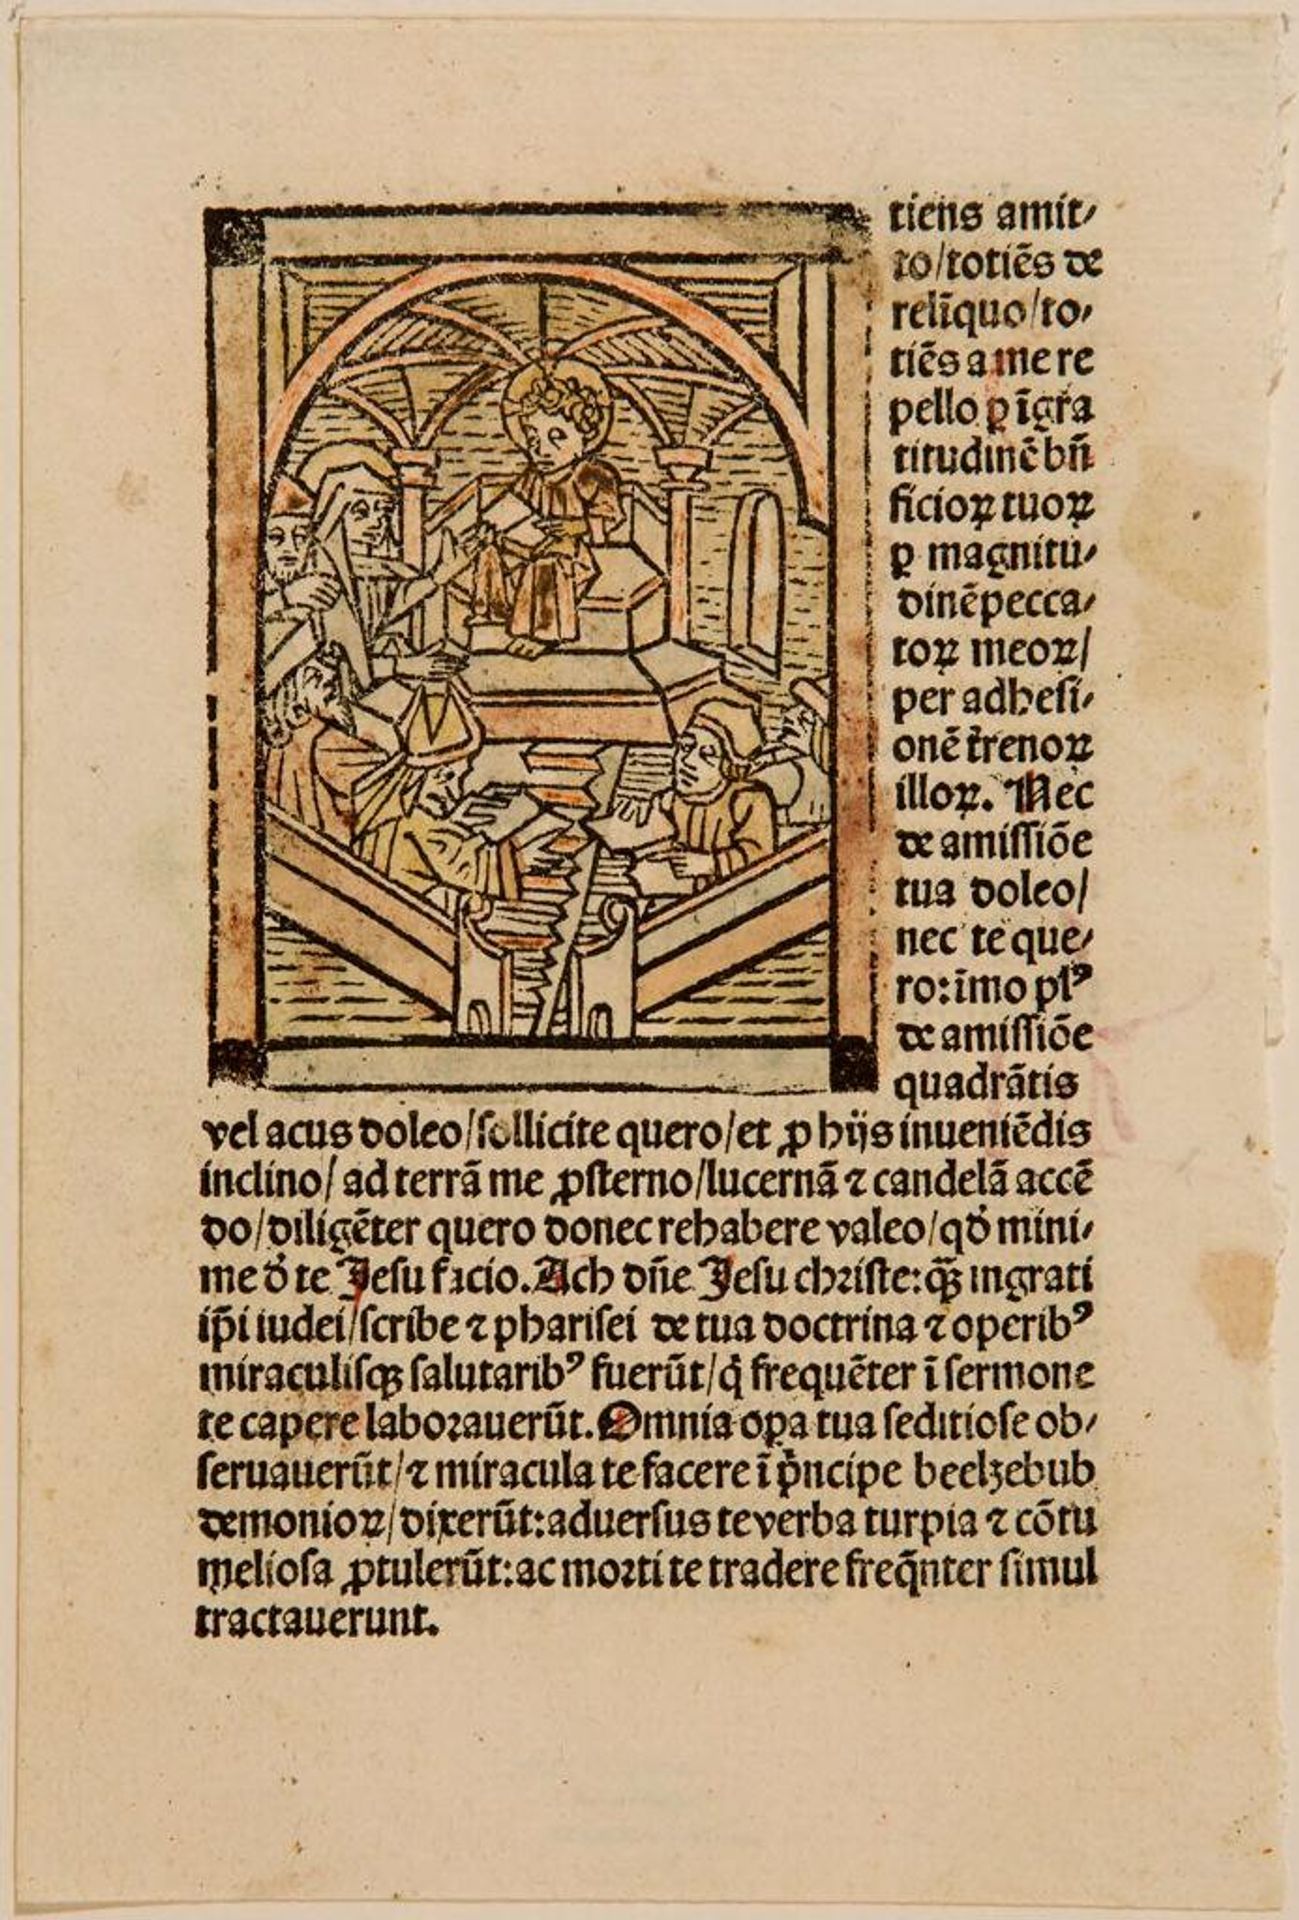 tiens amit⸗
to/totiẽs de
relĩquo/to⸗
tiẽs a me re
pello ꝑ ĩgr̃a
titudinẽ bñ
ficioꝝ tuoꝝ
ꝑ magnitu⸗
dinẽ pecca⸗
toꝝ meoꝝ/
per adhesi⸗
onẽ t̃renoꝝ
illoꝝ. Nec
de amissiõe
tua doleo/
nec te que⸗
ro: ĩmo plꝰ
de amissiõe
quadrãtis
vel acus doleo/sollicite quero/et ꝓ hijs inueniẽdis
inclino/ad terrã me ꝓsterno/lucernã ⁊ candelã accẽ
do/diligẽter quero donec rehabere valeo/qď mini⸗
me ď te Jesu facio. Ach dñe Jesu christe: q̃ꝫ ingrati
ip̃i iudei/scribe ⁊ pharisei de tua doctrina ⁊ operibꝰ
miraculisqꝫ salutaribꝰ fuerũt/q̇ frequẽter ĩ sermone
te capere laborauerũt. Omnia oꝑa tua seditiose ob⸗
seruauerũt/⁊ miracula te facere ĩ p̃ncipe beelzebub
demonioꝝ/dixerũt: aduersus te verba turpia ⁊ cõtu
meliosa ꝓtulerũt: ac morti te tradere freq̃nter simul
tractauerunt.